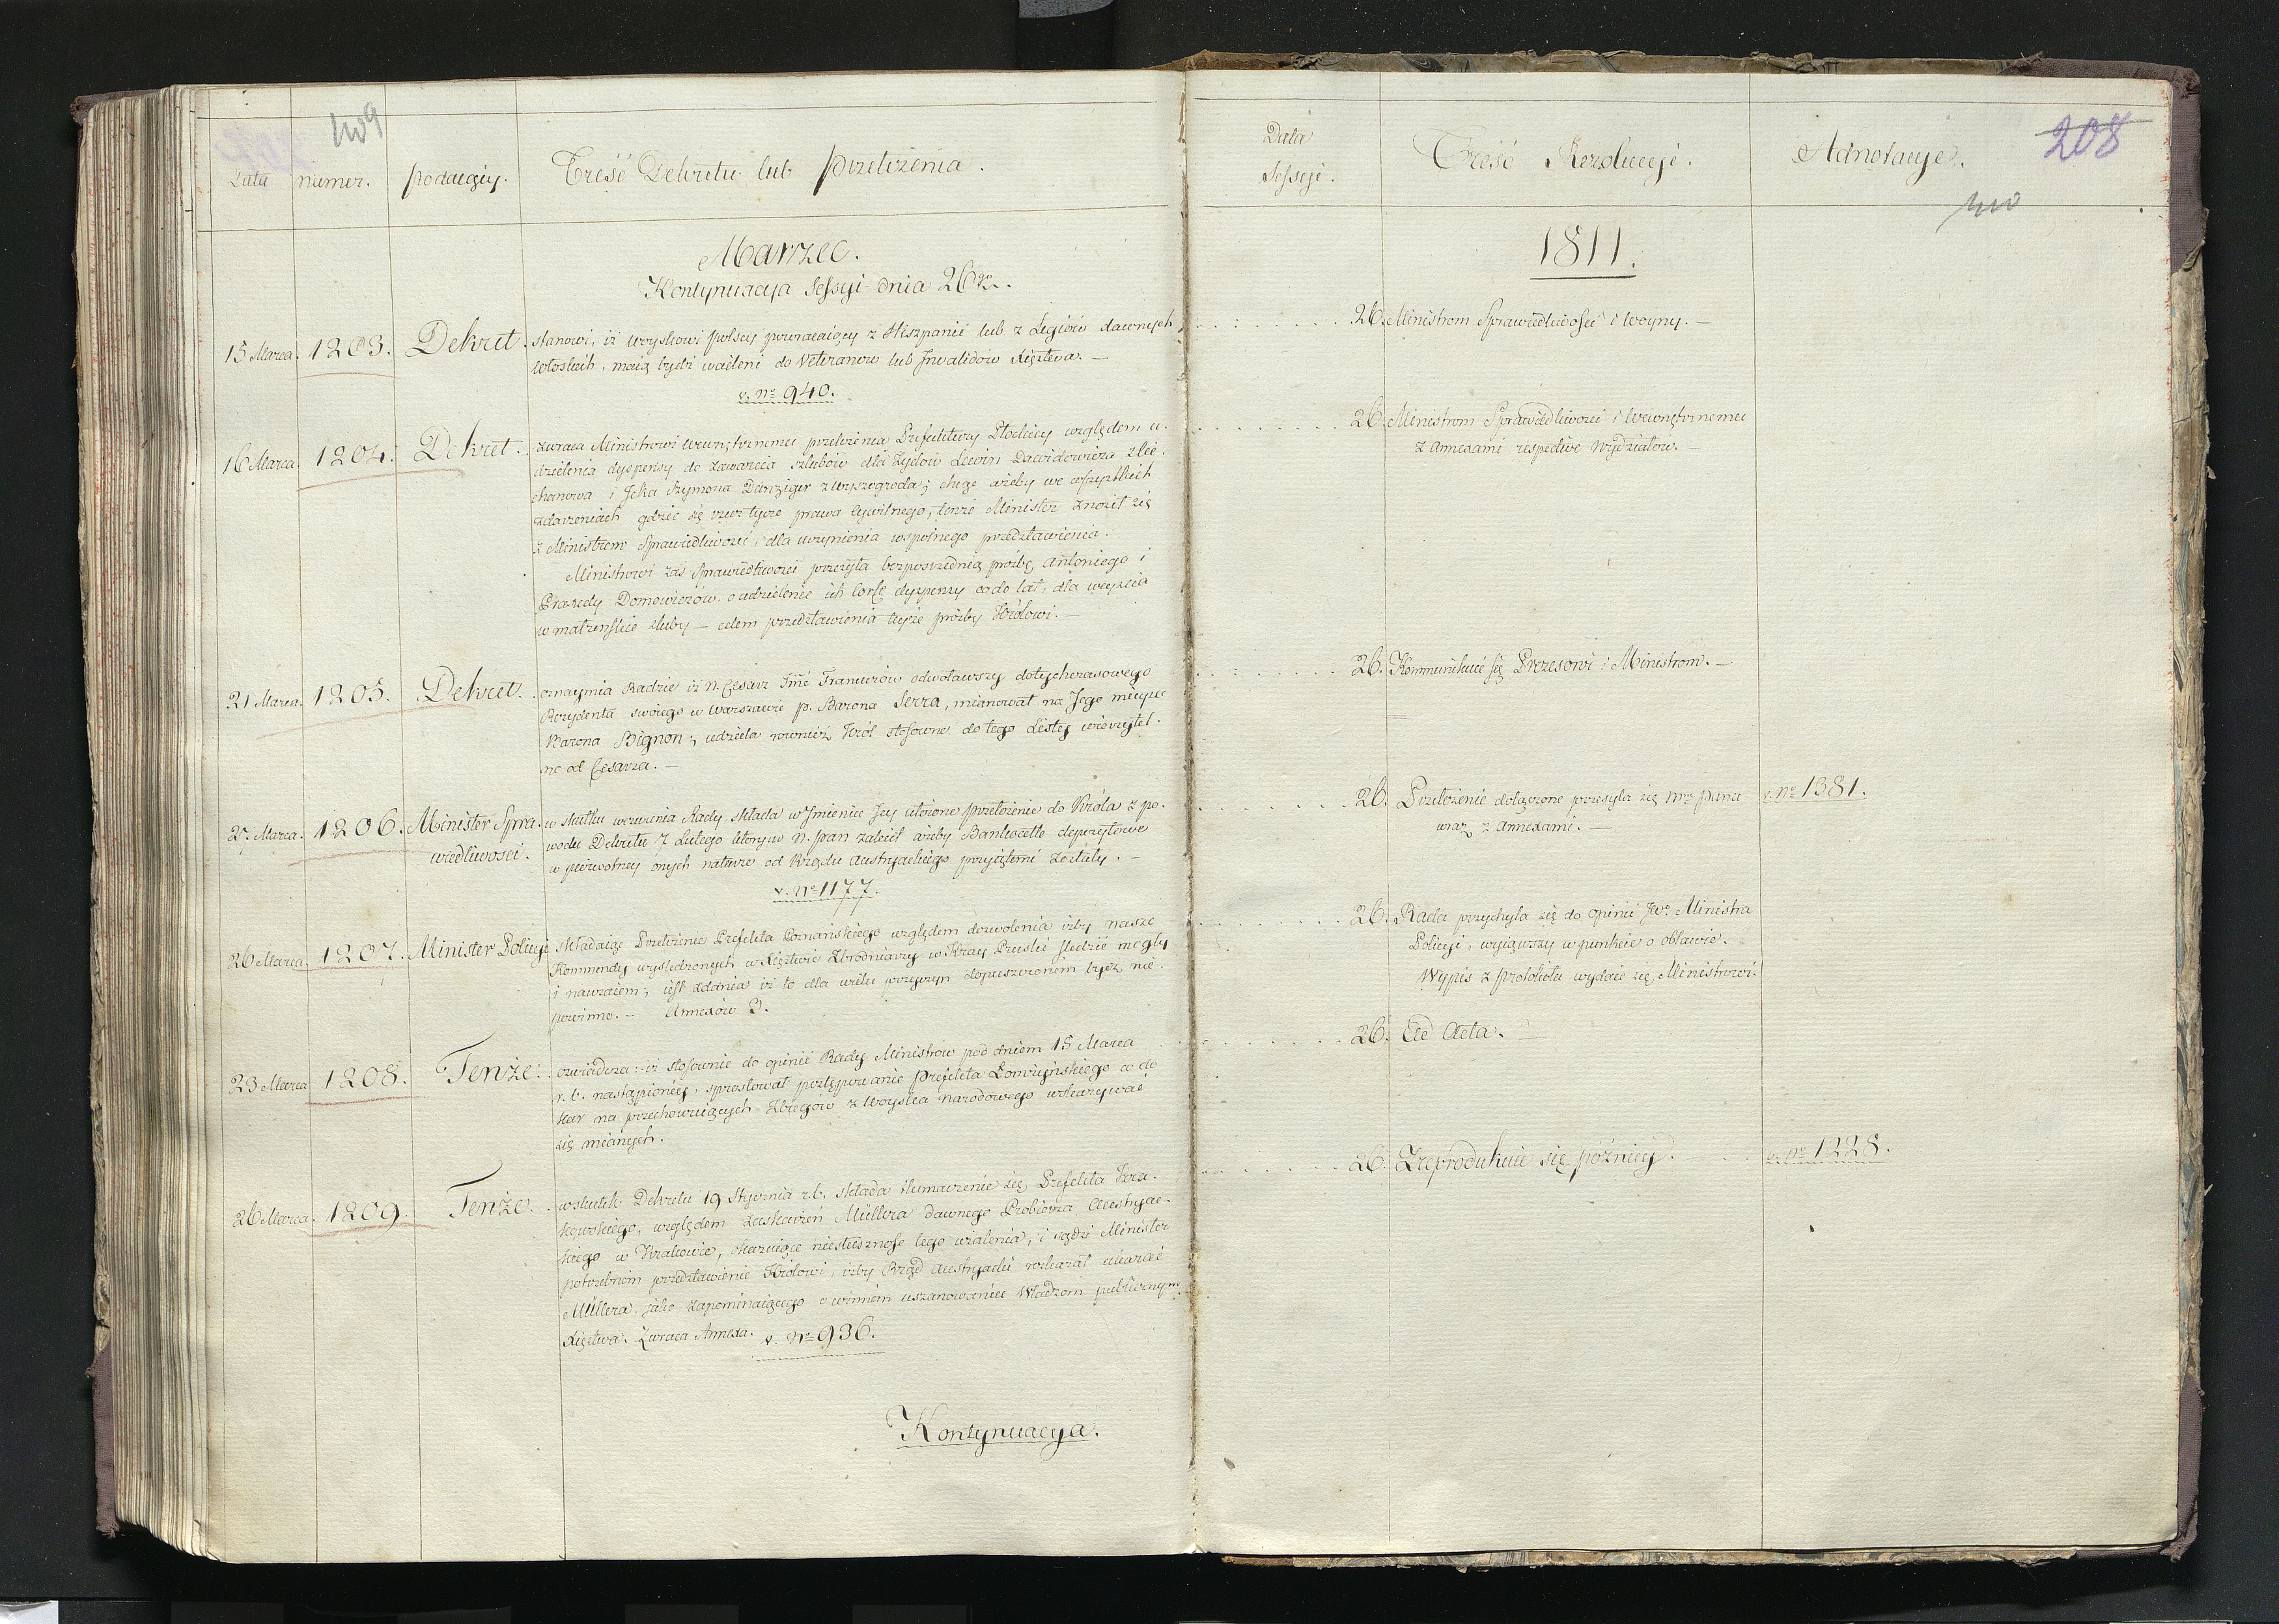 409
Data
numer.
podaiący.
Treść Dekretu lub przełożenia.
Marzec.
Kontynuacya Sessyi dnia 26go.
15 Marca. 1203. Dekret. stanowi, iż woyskowi polscy powracaiący z Hiszpanii lub z Legiów dawnych
włoskich, maią bydź wcieleni do Veteranów lub Inwalidów Xięztwa. —
v. No 940.
16 Marca. 1204. Dekret. zwraca Ministrowi wewnętrznemu przełożenia Prefektury Płockiey względem u-
dzielenia dyspensy do zawarcia szlubów dla Żydów Lewin Dawidowicza z Cie-
chanowa i Icka Szymona Danziger z Wyszogroda; chcąc ażeby we wszystkich
zdarzeniach gdzie się rzecz tycze prawa cywilnego, tenże Minister znosił się
z Ministrem Sprawiedliwości, dla uczynienia wspólnego przedstawienia.
Ministrowi zaś Sprawiedliwości przesyła bezpośrednią prośbę Antoniego i
Praxedy Domowiczów o udzielenie ich dyspensy co do lat, dla weyścia
w małżeńskie śluby — celem przedstawienia teyże prośby Królowi. —
21 Marca. 1205. Dekret. oznaymia Radzie iż N. Cesarz Jmć Francuzów odwoławszy dotychczasowego
Rezydenta swoiego w Warszawie p. Barona Serra, mianował na Jego mieysce
Barona Bignon; udziela rownież Król stosowne do tego Listy wierzytel-
ne od Cesarza. —
27 Marca. 1206. Minister Spra- w skutku wezwania Rady składa w Imieniu Jey ułożone przełożenie do Króla z po-
wiedliwości. wodu Dekretu 7 Lutego którym N. Pan zalecił ażeby Bankocetle depozytowe
w pierwotney onych naturze od Rządu Austryackiego przyiętemi zostały. —
v. No 1177.
26 Marca. 1207. Minister Policyi składaiąc Przełożenie Prefekta Poznańskiego względem dozwolenia iżby nasze
Kommendy wyśledzonych w Xięztwie Zbrodniarzy w Kray Pruski śledzić mogły
i nawzaiem; iest zdania iż to dla wielu przyczyn dopuszczonem bydź nie
powinno. — Annexów 3.
23 Marca 1208. Tenże. oświadcza: iż stosownie do opinii Rady Ministrów pod dniem 15 Marca
r. b. nastąpionéy, sprostował postępowanie Prefekta Łomżyńskiego co do
kar na przechowuiących Zbiegów z woyska narodowego wskazywać
się mianych.
26 Marca. 1209. Tenże. w skutek Dekretu 19 Stycznia r. b. składa tłumaczenie się Prefekta Kra-
kowskiego, względem zaskarżeń Müllera dawnego Probierza Austryac-
kiego w Krakowie, okazuiąc niesłuszność tego użalenia, i sądzi Minister
potrzebnem przedstawienie Królowi, iżby Rząd Austryacki rozkazał ukarać
Müllera, iako zapominaiącego o winnem uszanowaniu Władzom publicznym
Xięztwa. Zwraca Annexa. v. No 936.
Kontynuacya.
Data
Sessyi.
Treść Rezolucyi.
Adnotacye.
208
410
1811.
26. Ministrom Sprawiedliwości i Woyny. —
26. Ministrom Sprawiedliwości i Wewnętrznemu
z Annexami respective Wydziałów. —
26. Kommunikuie się Prezesowi i Ministrom. —
26. Przełożenie dołączone przesyła się
wraz z Annexami. —
v. No 1381.
26. Rada przychyla się do opinii JWo Ministra
Policyi, wyiąwszy w punkcie o obławie.
Wypis z protokółu wydaie się Ministrowi.
26. Ad Acta. —
26. Zreprodukuie się późniey. —
v. No 1228.